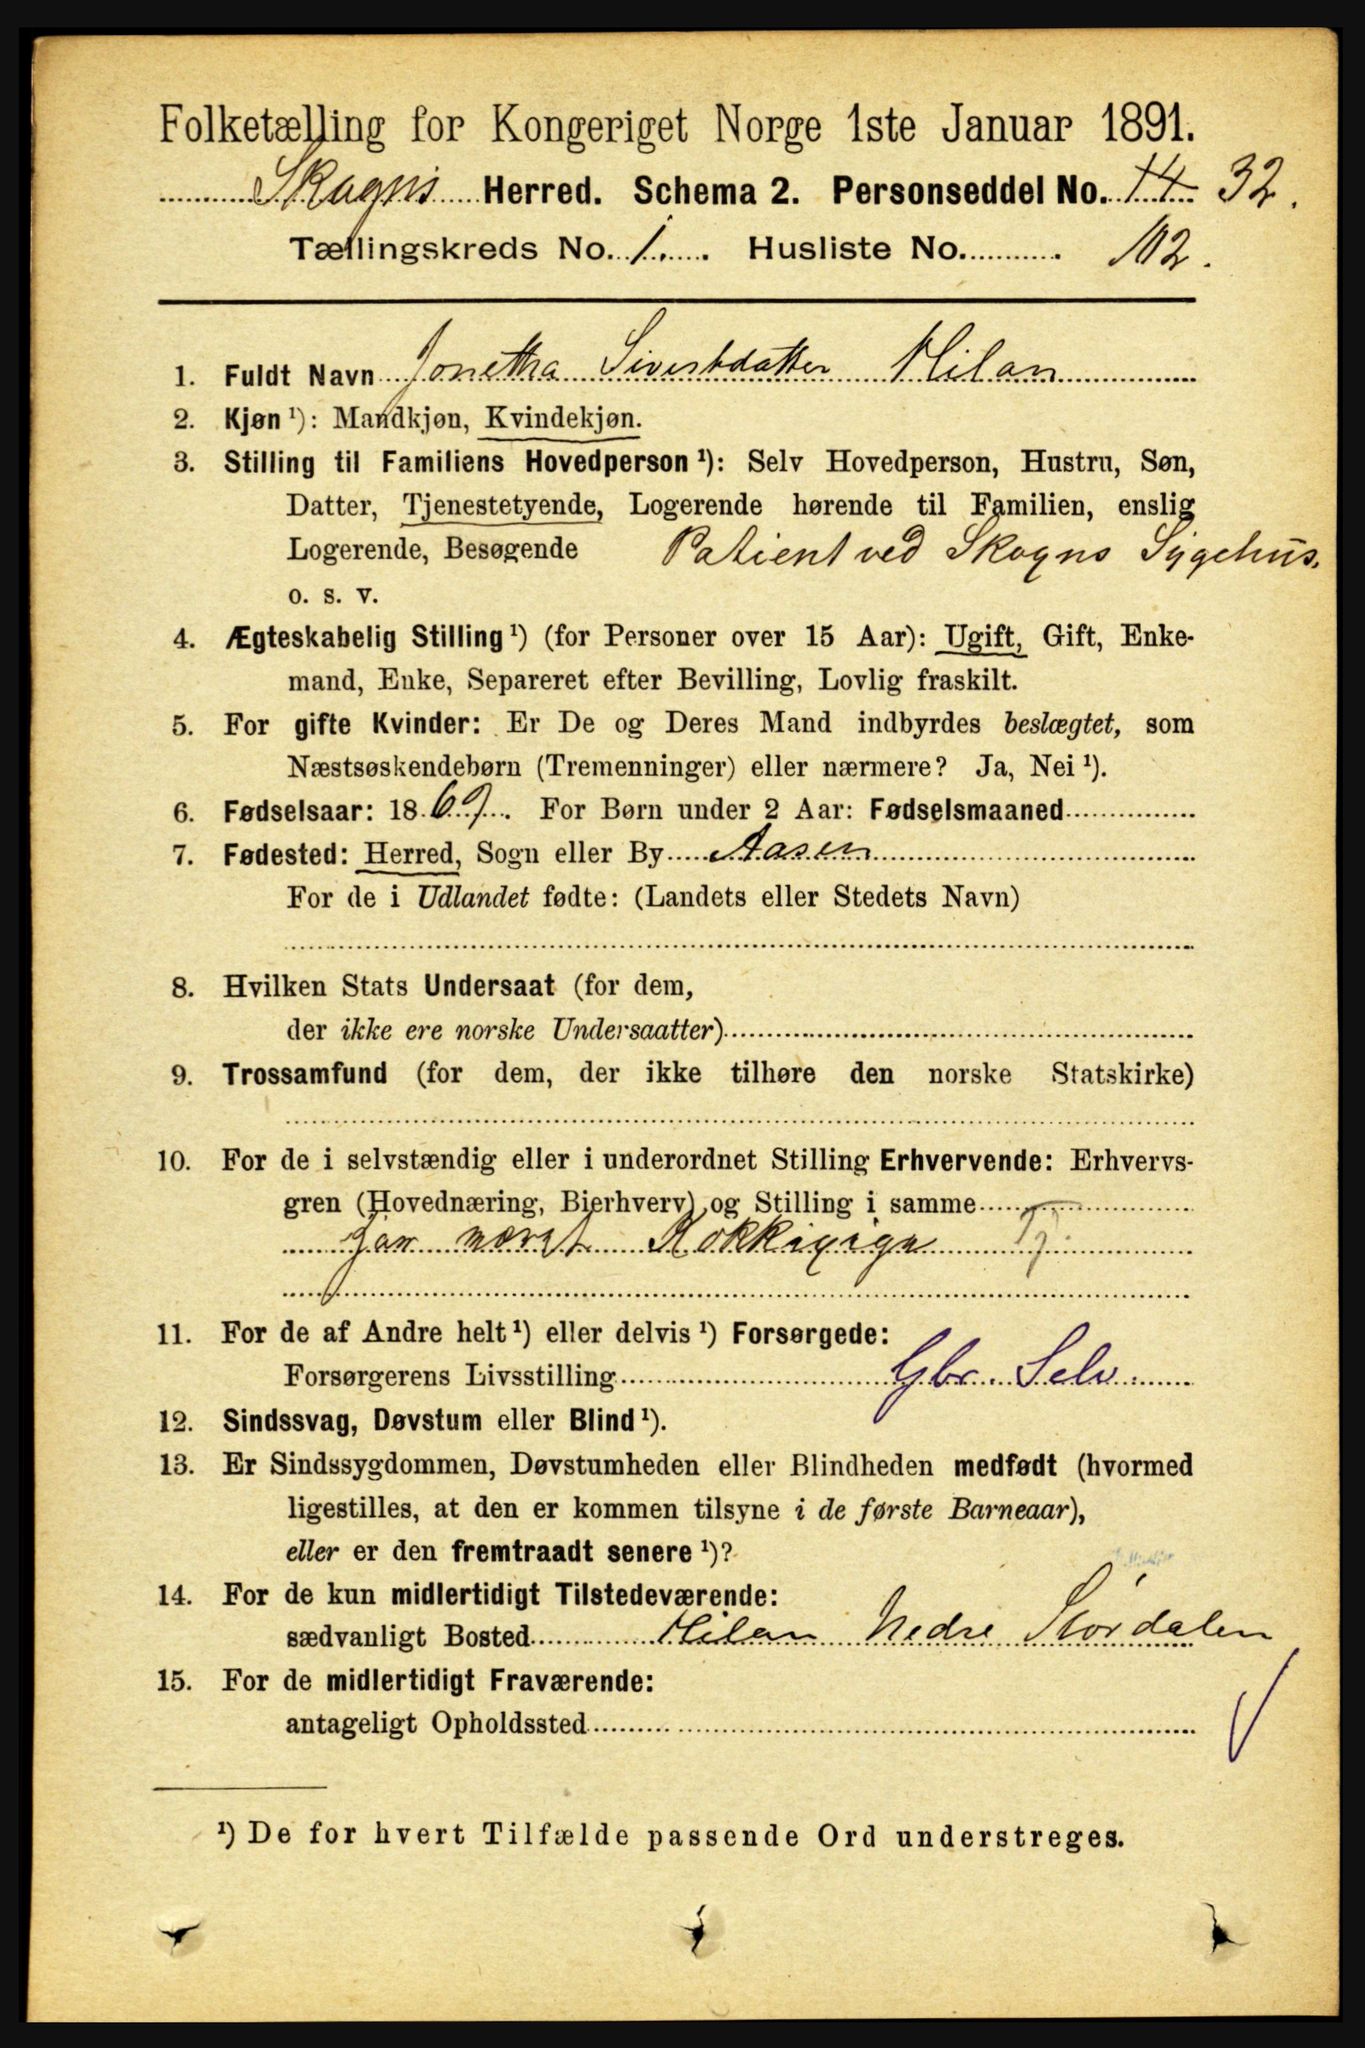 Folketælling for Kongeriget Norge 1ste Januar 1891.
Skogns Herred. Schema 2. Personseddel No. 14 32.
Tællingskreds No. 1. Husliste No. 112.
1. Fuldt Navn Jonetha Sivertdatter Milan
2. Kjøn ¹): Mandkjøn, Kvindekjøn.
3. Stilling til Familiens Hovedperson ¹): Selv Hovedperson, Hustru, Søn,
Datter, Tjenestetyende, Logerende hørende til Familien, enslig
Logerende, Besøgende Patient ved Skogns Sygehus.
o. s. v.
4. Ægteskabelig Stilling ¹) (for Personer over 15 Aar): Ugift, Gift, Enke-
mand, Enke, Separeret efter Bevilling, Lovlig fraskilt.
5. For gifte Kvinder: Er De og Deres Mand indbyrdes beslægtet, som
Næstsøskendebørn (Tremenninger) eller nærmere? Ja, Nei ¹).
6. Fødselsaar: 1869. For Børn under 2 Aar: Fødselsmaaned
7. Fødested: Herred, Sogn eller By Aasen
For de i Udlandet fødte: (Landets eller Stedets Navn)
8. Hvilken Stats Undersaat (for dem,
der ikke ere norske Undersaatter)
9. Trossamfund (for dem, der ikke tilhøre den norske Statskirke)
10. For de i selvstændig eller i underordnet Stilling Erhvervende: Erhvervs-
gren (Hovednæring, Bierhverv) og Stilling i samme
har været Kokkepige Tj.
11. For de af Andre helt ¹) eller delvis ¹) Forsørgede:
Forsørgerens Livsstilling Gbr. Selv
12. Sindssvag, Døvstum eller Blind ¹).
13. Er Sindssygdommen, Døvstumheden eller Blindheden medfødt (hvormed
ligestilles, at den er kommen tilsyne i de første Barneaar),
eller er den fremtraadt senere ¹)?
14. For de kun midlertidigt Tilstedeværende:
sædvanligt Bosted Milan Nedre Stördalen
15. For de midlertidigt Fraværende:
antageligt Opholdssted
¹) De for hvert Tilfælde passende Ord understreges.